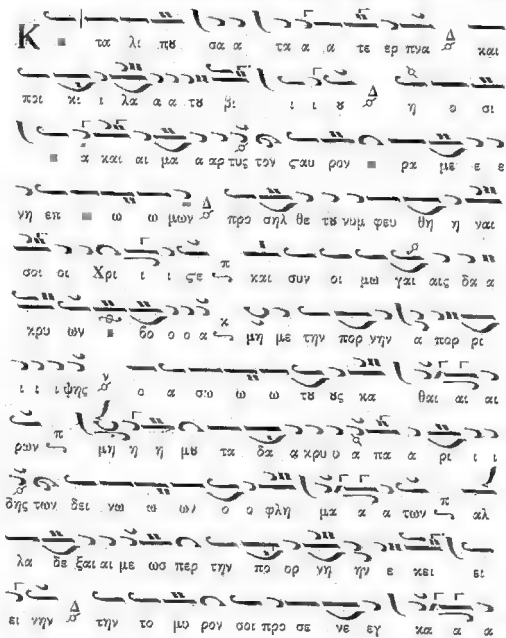 Κ τα λι πȣ σα α τα α α τε ερ πνα Δ και
ποι κι ι λα α α τȣ βι ι ι ȣ Δ η ο σι
α και αι μα α αρ της τον ϛαυ ρον ρα με ε ε
νη επ ω ω μων Δ προ σηλ θε τȣ νυμ φευ θη η ναι
σοι οι Χρι ι ι ϛε π και συν οι μω γαι αις δα α
κρυ ων βο ο ο α κ μη με την πορ νην α πορ ρι
ι ι ι ψης ν ο α σω ω ω ω τȣ ȣς κα θαι αι αι
ρων π μη η η μȣ τα δα α κρυ υ α πα α ρι ι ι
δης των δει νω ω ων ο ο φλη μα α α α των π αλ
λα δε ξαι αι με ωσ περ την πο ορ νη ην ε κει ει
ει νην Δ την το μυ ρον σοι προ σε νε εγ κα α α